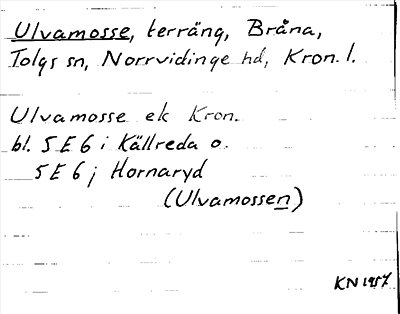 Ulvamosse, terräng, Bråna,
Tolgs sn, Norrvidinge hd, Kron. l.
Ulvamosse ek Kron.
bl. 5 E 6 i Källreda o.
5 E 6 j Hornaryd
(Ulvamossen)
KN 1957